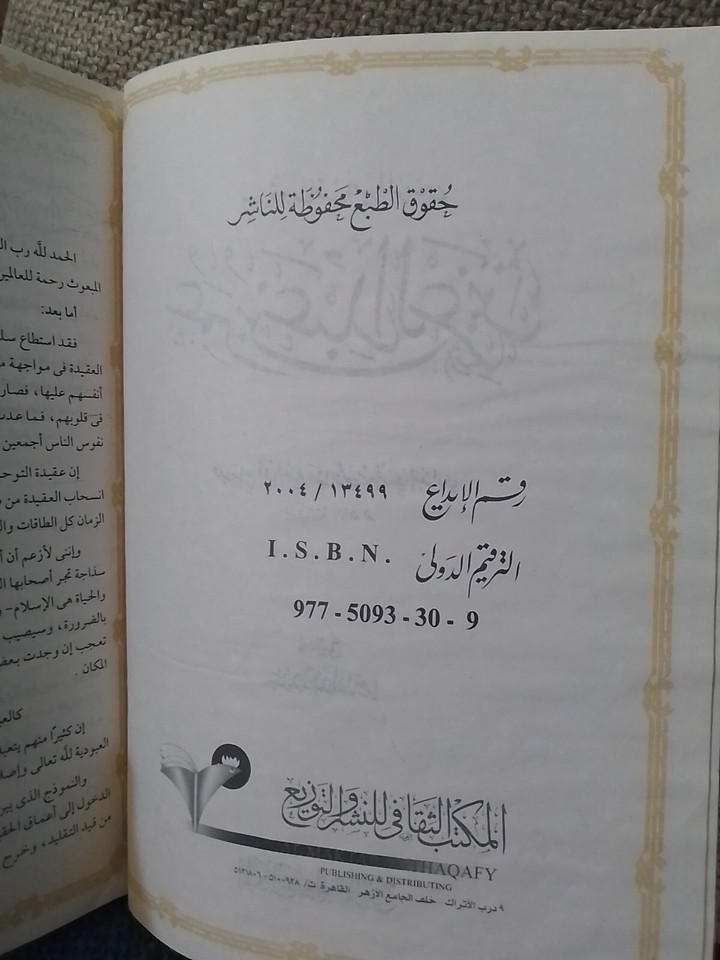 حُقوُق الطْبْع مَحفوُظَة لِلنَاشِر
رقم الإيداع ١٣٤٩٩ / ٢٠٠٤
الترقيم الدَولى I.S.B.N.
977 - 5093 - 30 - 9
المكتب الثقافى للنشر والتوزيع
THAQAFY
PUBLISHING & DISTRIBUTING
٩ درب الأتراك خلف الجامع الأزهر القاهرة ت/ ٥١٠٠٩٣٨-٥١٢١٨٠٦
الحمد للَّه رب
المبعوث رحمة للعالمين
أما بعد:
فقد استطاع
العقيدة فى مواجهة
أنفسهم عليها، فصار
فى قلوبهم، فما
نفوس الناس أجمعين
إن عقيدة
انسحاب العقيدة من
الزمان كل الطاقات
وإننى لأزعم أن
سذاجة تجر أصحابها
والحياة هى الإسلام-
بالضرورة، وسيصيب
تعجب إن وجدت
المكان .
إن كثيرًا منهم
العبودية للَّه تعالى
والنموذج الذى
الدخول إلى أعماق
من قيد التقليد، وخرج